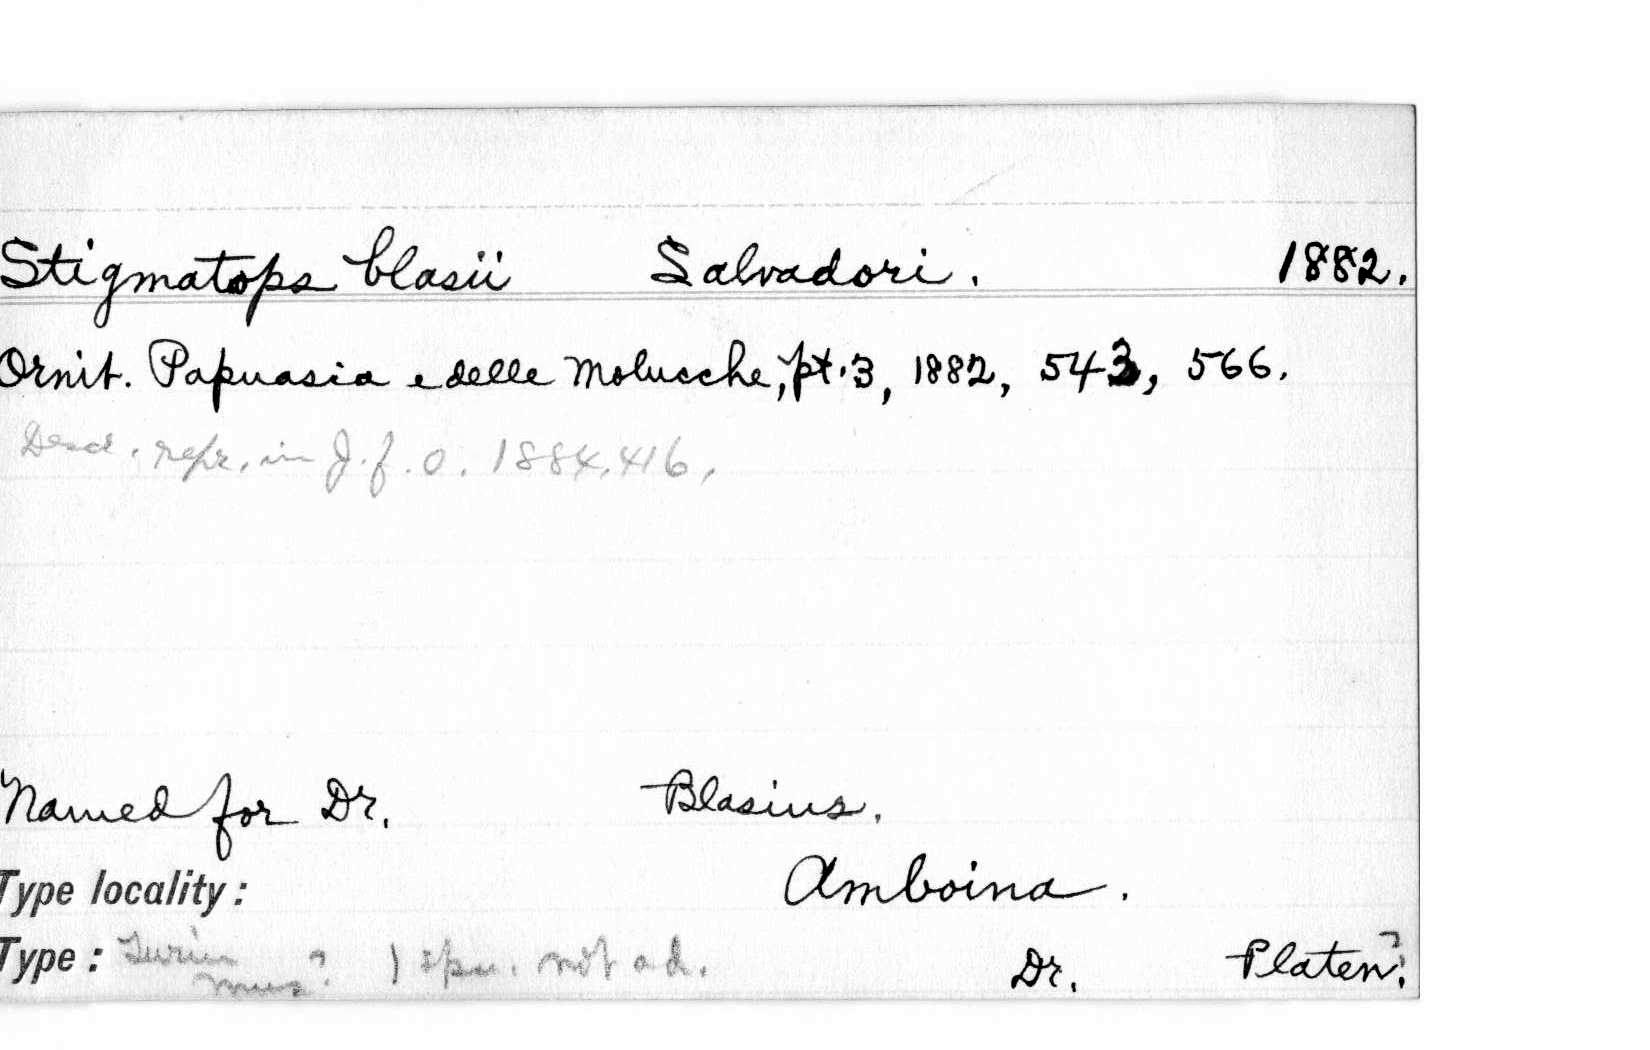 Stigmatops blasii Salvadori. 1882.
Ornit. Papuasia e delle Molucche, pt. 3, 1882, 543, 566.
Desc. repr. in J. f. O. 1884, 416.
Named for Dr. Blasius.
Type locality: Amboina.
Type: Turin Mus? 1 spec. not ad. Dr. Platen?